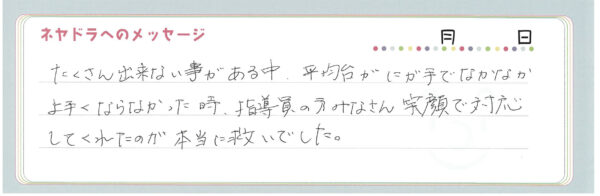 ネヤドラへのメッセージ
月 日
たくさん出来ない事がある中、平均台がにが手でなかなか
上手くならなかった時、指導員のみなさん笑顔で対応
してくれたのが本当に救いでした。